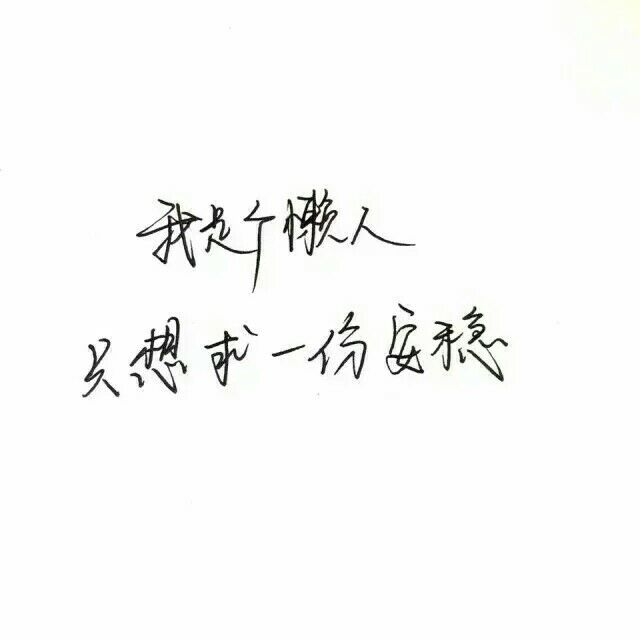 我是个懒人
只想求一份安稳